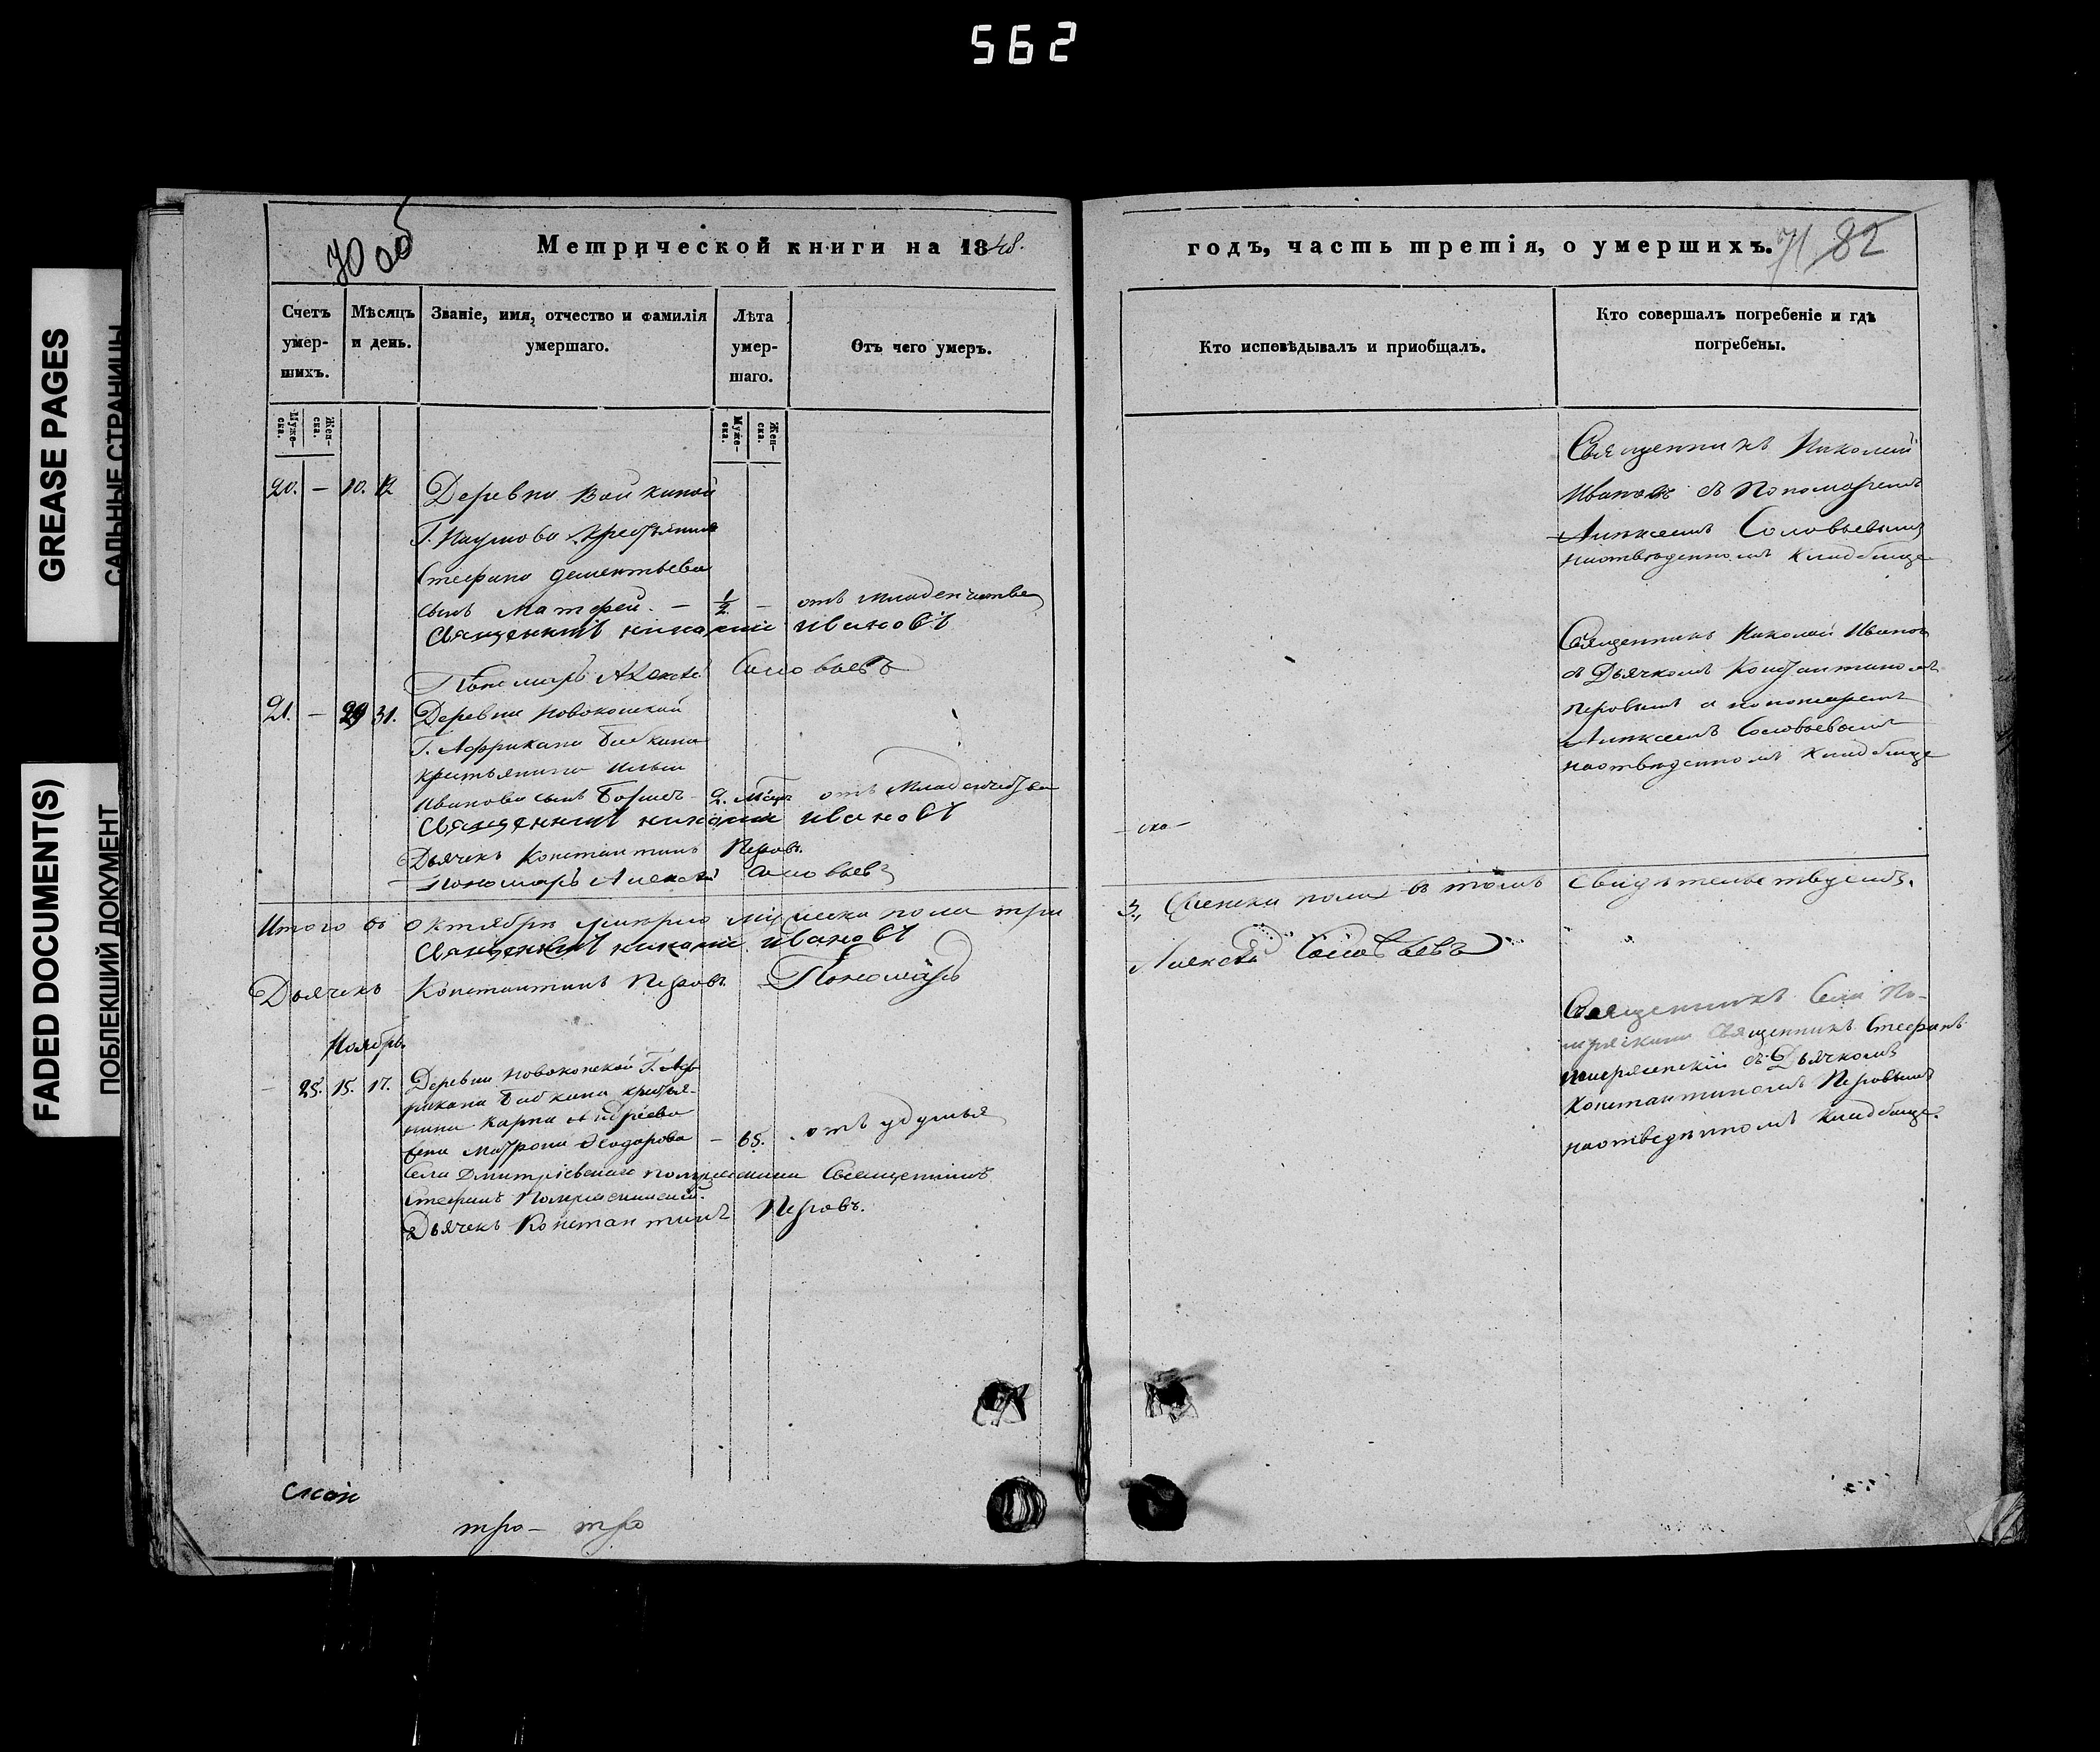 562
GREASE PAGES
САЛЬНЫЕ СТРАНИЦЫ
FADED DOCUMENT(S)
ПОБЛЕКШИЙ ДОКУМЕНТ
70 об
Метрической книги на 1848.
Счетъ умер- шихъ.
Мѣсяцъ и день.
Званіе, имя, отчество и фамилія умершаго.
Лѣта умер- шаго.
Отъ чего умеръ.
Муже- ска.
Жен- ска.
Муже- ска.
Жен- ска.
20. – 10. 12 Деревни
Г. Наумова крестьянина
Стефана Дементьева
сынъ Матфей. – 1/2 – отъ младенчества
Священникъ Николай Ивановъ
Пономарь Алексѣй Соловьевъ
21. – 29 31. Деревни Новоконской
Г. Аффрикана Бабкина
крестьянина Ильи
Иванова сынъ Борисъ – 2. мѣсц. отъ младенчества
Священникъ Николай Ивановъ
Дьячекъ Константинъ Перовъ.
Пономарь Алексѣй Соловьевъ
Итого въ Октябрѣ умерло мужеска пола три
Священникъ Николай Ивановъ
Дьячекъ Константинъ Перовъ. Пономарь
Ноябрь.
– 25. 15. 17. Деревни Новоконской Г. Аф-
рикана Бабкина крестья-
нина Карпа Андреева
жена Матрона Ѳеодорова – 65. отъ удушья
Села Дмитріевскаго Священникъ
Стефанъ
Дьячекъ Константинъ Перовъ.
тро– тро
годъ, часть третія, о умершихъ.
71 82
Кто исповѣдывалъ и приобщалъ.
Кто совершалъ погребеніе и гдѣ погребены.
Священникъ Николай
Ивановъ съ Пономаремъ
Алексеемъ Соловьевымъ
наотведенномъ кладбище
Священникъ Николай Иванов
съ Дьячкомъ Константиномъ
Перовымъ и пономаремъ
Алексеемъ Соловьевымъ
наотведенномъ кладбище
– ска –
3, Женска пола въ томъ свидѣтельствуемъ.
Алексѣй Соловьевъ
Священникъ Села
Священникъ Стефанъ
съ Дьячкомъ
Константиномъ Перовымъ
наотведенномъ кладбище.